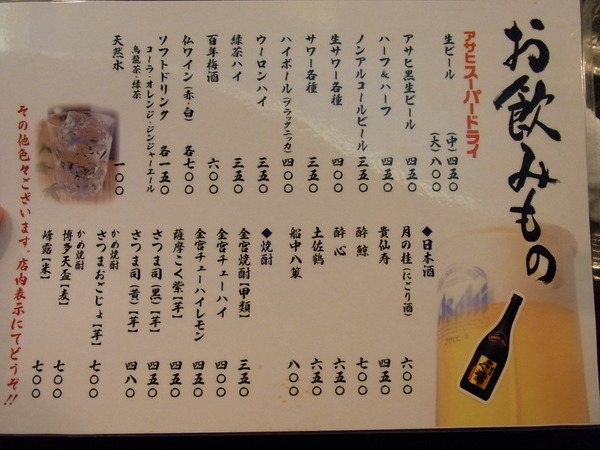 お飲みもの
アサヒスーパードライ
生ビール
(中)四五〇
(大)八〇〇
アサヒ黒生ビール 四五〇
ハーフ&ハーフ 四五〇
ノンアルコールビール 三五〇
生サワー各種 四〇〇
サワー各種 三五〇
ハイボール(ブラックニッカ) 四〇〇
ウーロンハイ 三五〇
緑茶ハイ 三五〇
百年梅酒 六〇〇
仏ワイン(赤・白) 各七〇〇
ソフトドリンク 各一五〇
コーラ・オレンジ・ジンジャーエール
烏龍茶・緑茶
天然水 一〇〇
◆日本酒
月の桂(にごり酒) 六〇〇
貴仙寿 四五〇
酔鯨 七〇〇
酔心 六五〇
土佐鶴 六五〇
船中八策 八〇〇
◆焼酎
金宮焼酎【甲類】 三五〇
金宮チューハイ 四〇〇
金宮チューハイレモン 四五〇
薩摩こく紫【芋】 四五〇
さつま司(黒)【芋】 四五〇
さつま司(黄)【芋】 四八〇
かめ焼酎
さつまおごじょ【芋】 七〇〇
かめ焼酎
博多天盃【麦】 七〇〇
峰露【米】 七〇〇
その他色々ございます。店内表示にてどうぞ!!
Asahi